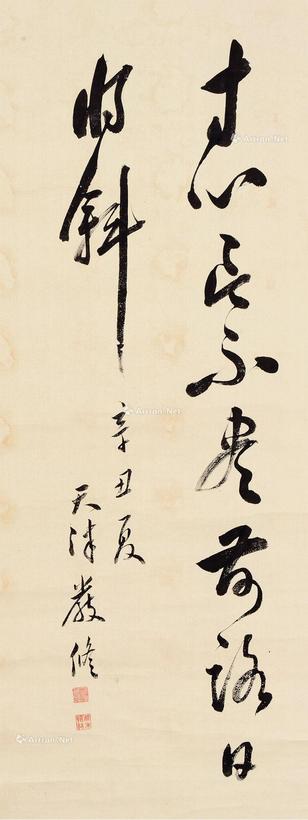 寸心言不盡前路日
將斜
辛丑夏
天津嚴修
Artron.Net
Artron.Net
Artron.Net